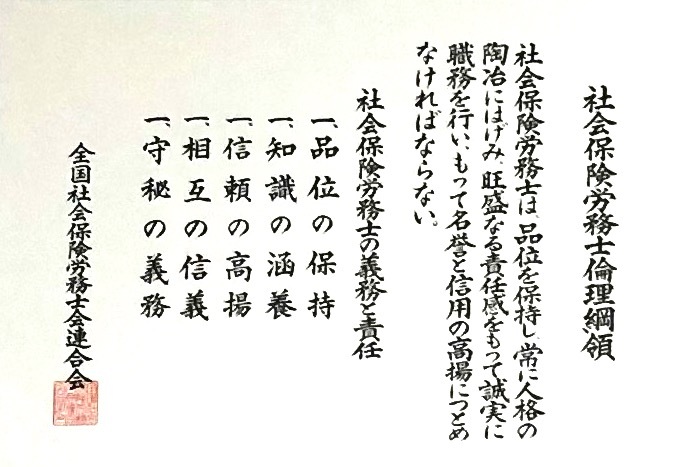 社会保険労務士倫理綱領
社会保険労務士は、品位を保持し、常に人格の
陶冶にはげみ、旺盛なる責任感をもって誠実に
職務を行い、もって名誉と信用の高揚につとめ
なければならない。
社会保険労務士の義務と責任
一、品位の保持
一、知識の涵養
一、信頼の高揚
一、相互の信義
一、守秘の義務
全国社会保険労務士会連合会